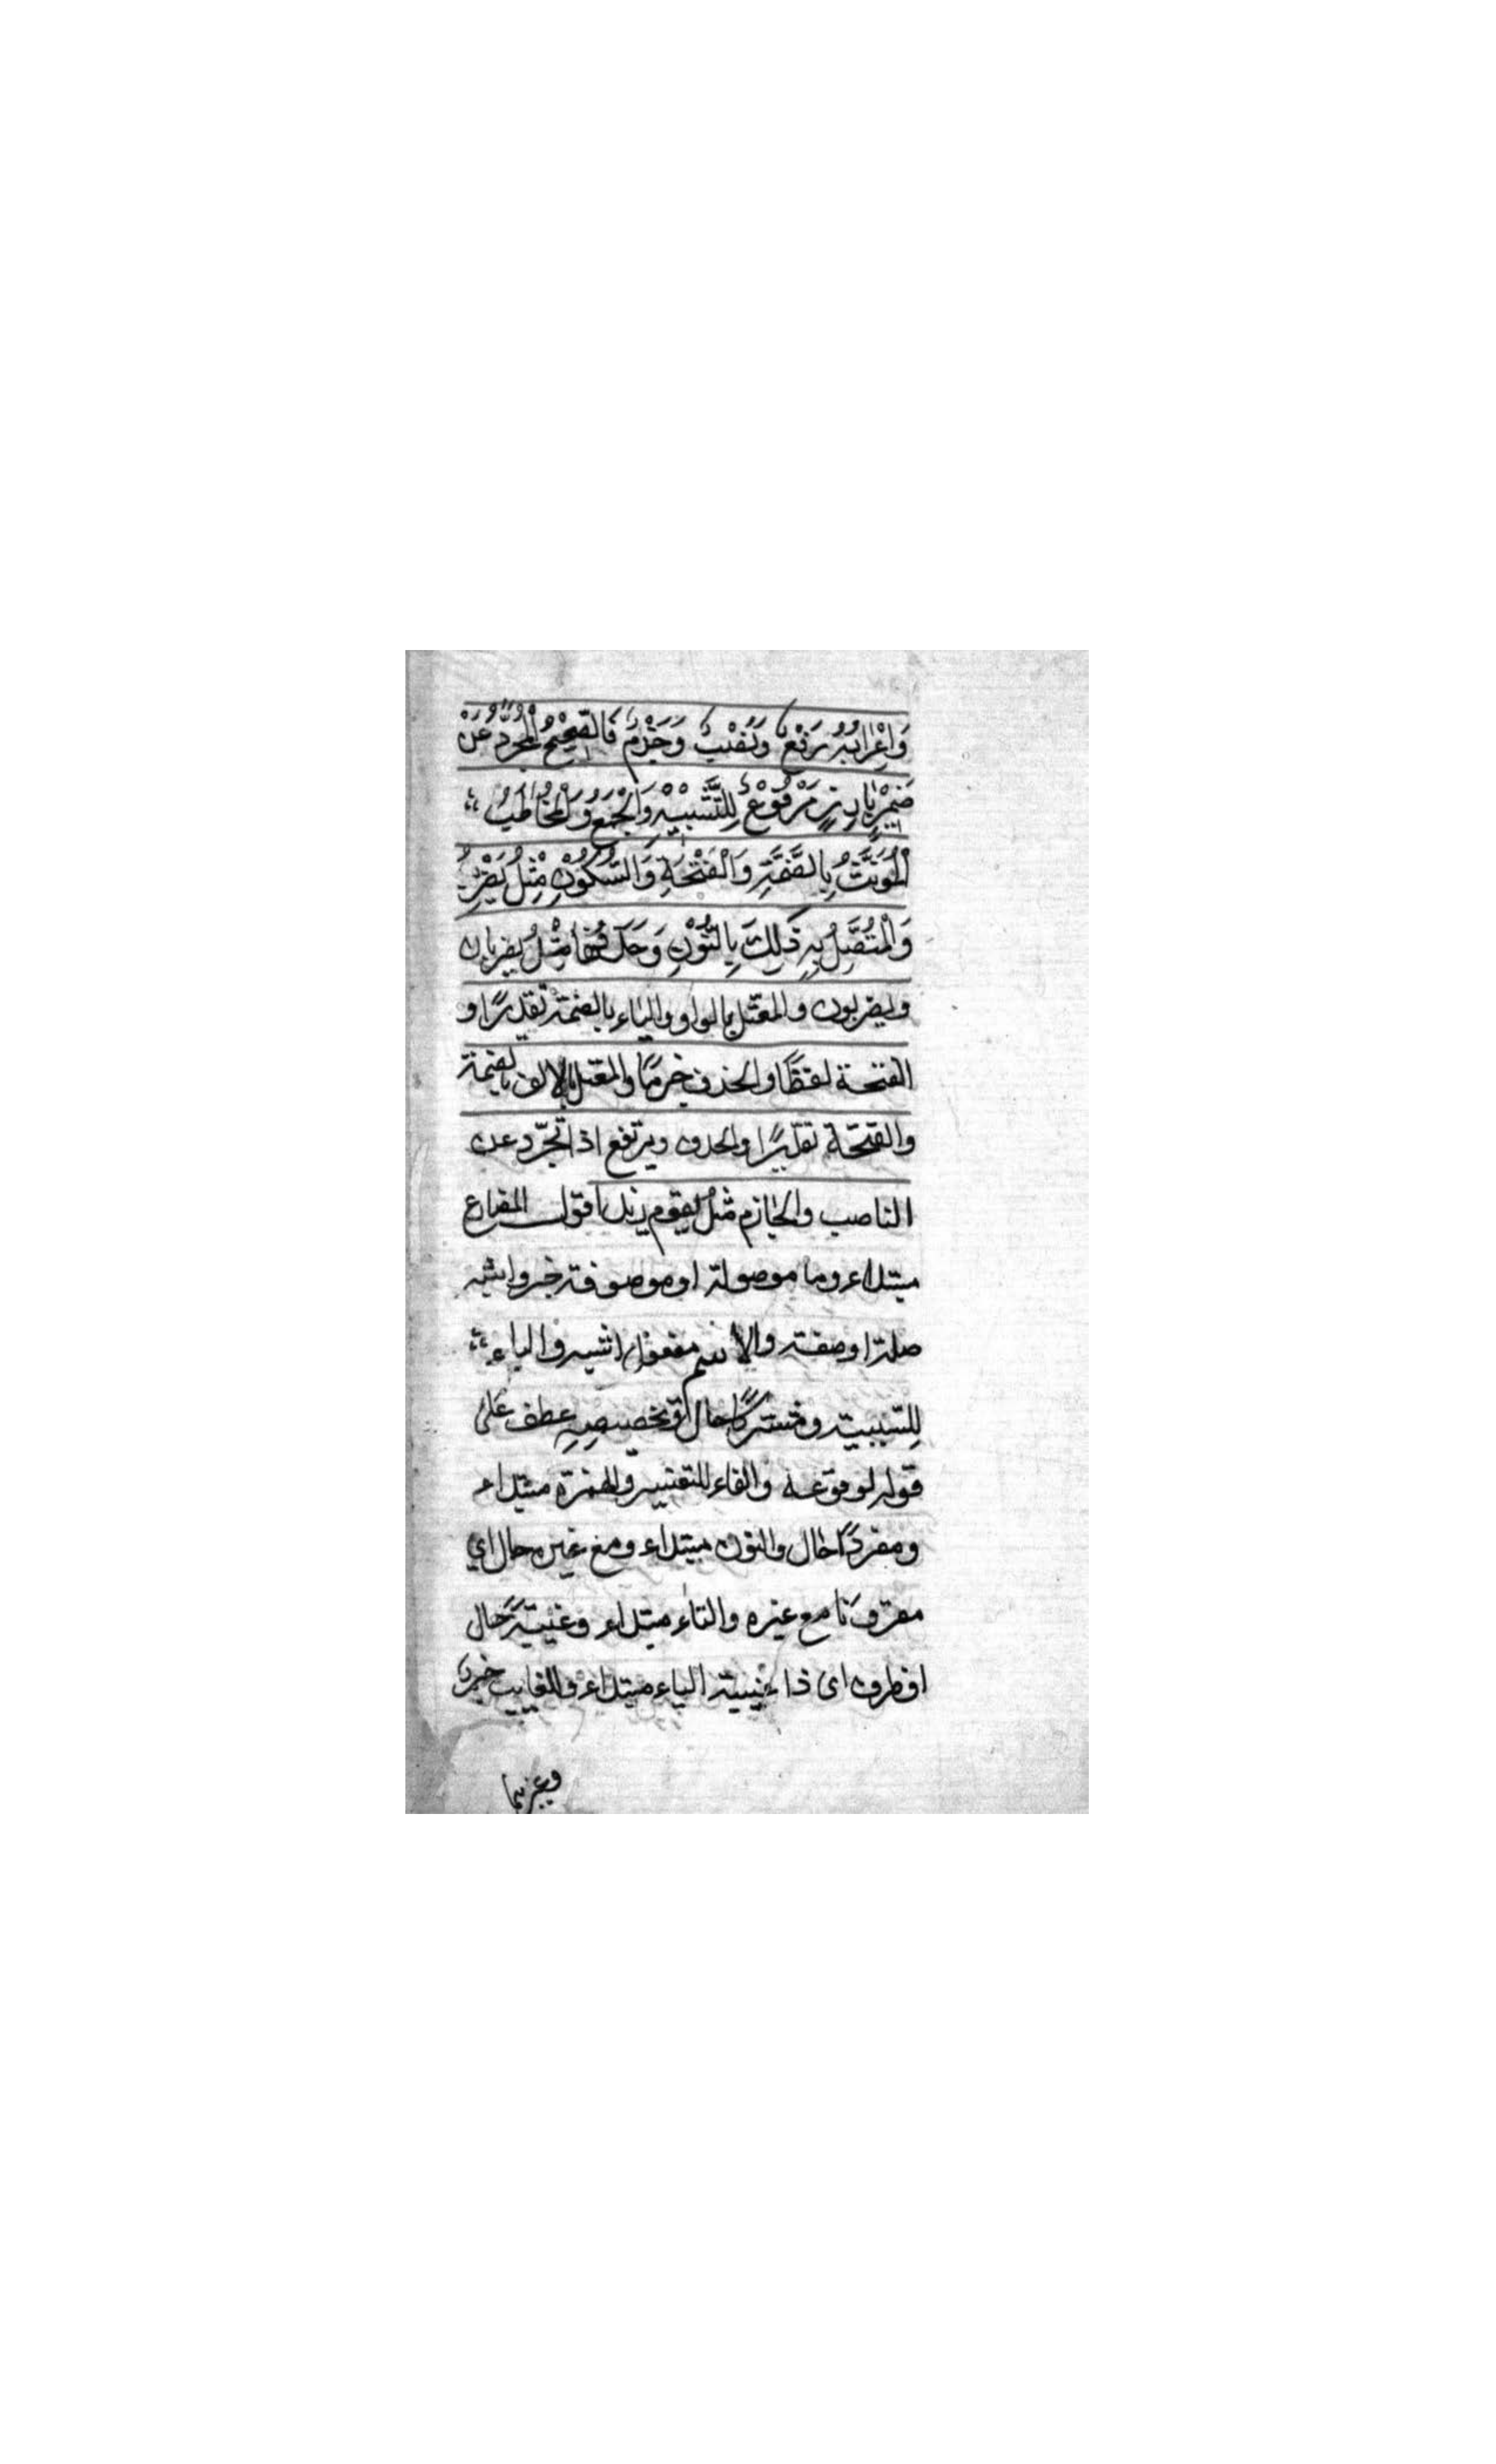 وَاِعْرَابُهُ رَفْعٌ وَنَصْبٌ وَجَزْمٌ فَالصَّحِيْحُ الْمُجَرَّدُ عَنْ
ضَمِيْرٍ بَارِزٍ مَرْفُوْعٍ لِلتَّثْنِيَةِ وَالْجَمْعِ وَالْمُخَاطَبِ
الْمُوَنَّثِ بِالضَّمَّةِ وَالْفَتْحَةِ وَالسُّكُوْنِ مِثْلُ يَضْرِبُ
وَالْمُتَّصِلُ بِهِ ذَلِكَ بِالنُّوْنِ وَحَذْفِهَا مِثْلُ يضربان
ويضربون والمعتل بالواو والياء بالضمة تقديرًا و
الفتحة لفظًا والحذف جزمًا والمعتل بالالف بالضمة
والفتحة تقديرًا والحذف ويرتفع اذا تجرّد عن
الناصب والجازم مثل يقوم زيد اقول المضارع
مبتداء وما موصولة او موصوفة خبر واشبه
صلة او صفة والاسم مفعول اشبه والباء
للسّببية ومشتركًا حال وتخصيصه عطف على
قوله لوقوعه والفاء للتفسير والهمزة مبتداء
ومفردًا حال والنون مبتداء ومع غيره حال اي
مقرونا مع غيره والتاء مبتداء وغيبة حال
او ظرف اى ذا غيبية الياء مبتداء وللغايب خبره
وغيرهما